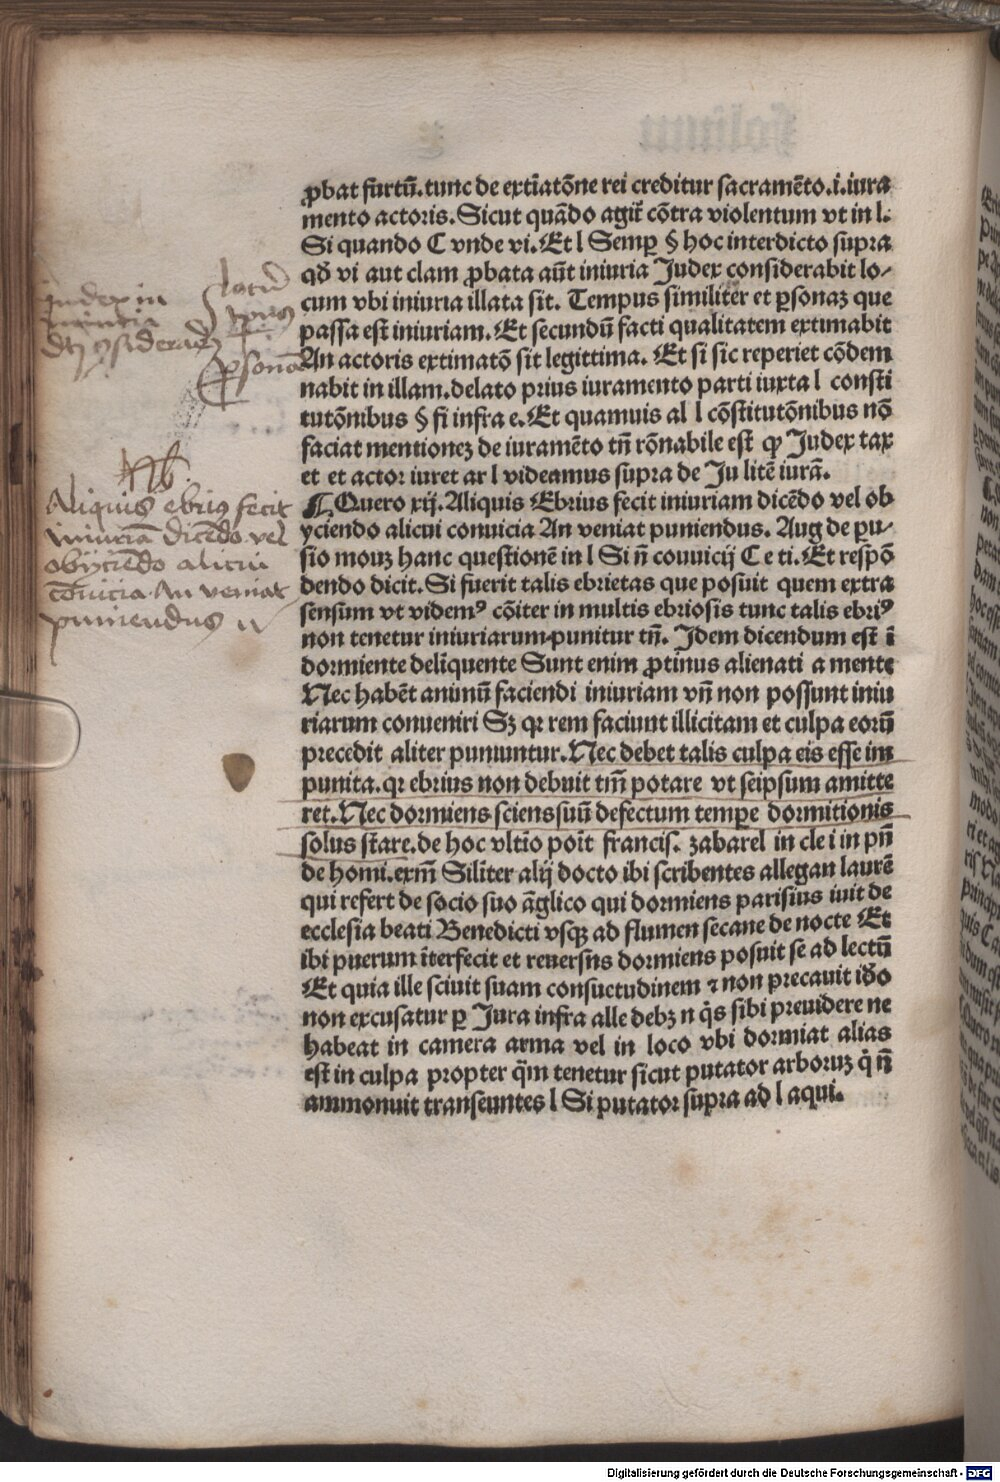 ꝓbat furtū. tunc de extīatōne rei creditur sacramēto .i. iura
mento actoris. Sicut quādo agit̄ cōtra violentum vt in l.
Si quando C vnde vi. Et l Semꝑ § hoc interdicto supra
qđ vi aut clam ꝓbata aūt iniuria Judex considerabit lo/
cum vbi iniuria illata sit. Tempus similiter et ꝑsonaꝫ que
passa est iniuriam. Et secundū facti qualitatem extimabit
An actoris extimatō sit legittima. Et si sic reperiet cōdem
nabit in illam. delato prius iuramento parti iuxta l consti
tutōnibus § fi infra e. Et quamuis al l cōstitutōnibus nō
faciat mentioneꝫ de iuramēto tn̄ rōnabile est ꝙ Judex tax
et et actor iuret ar l videamus supra de Ju litē iurā.
¶ Quero xij. Aliquis Ebrius fecit iniuriam dicēdo vel ob
yciendo alicui conuicia An veniat puniendus. Aug de pu/
sio mouꝫ hanc questionē in l Si n̄ conuicij C e ti. Et respō
dendo dicit. Si fuerit talis ebrietas que posuit quem extra
sensum vt videmꝰ cōiter in multis ebriosis tunc talis ebriꝰ
non tenetur iniuriarum. punitur tn̄. Idem dicendum est ī
dormiente delīquente Sunt enim ꝓtinus alienati a mente
Nec habēt animū faciendi iniuriam vn̄ non possunt iniu
riarum conueniri Sꝫ qꝛ rem faciunt illicitam et culpa eorū
precedit aliter puniuntur. Nec debet talis culpa eis esse im
punita. qꝛ ebrius non debuit tm̄ potare vt seipsum amitte
ret. Nec dormiens sciens suū defectum tempe dormitionis
solus stare. de hoc vltīo poīt francis. zabarel in cle i in pn̄
de homi. exm̄ Siliter alij docto ibi scribentes allegan laurē
qui refert de socio suo āglico qui dormiens parisius iuit de
ecclesia beati Benedicti vsqꝫ ad flumen secane de nocte Et
ibi puerum īterfecit et reuersus dormiens posuit se ad lectū
Et quia ille sciuit suam consuetudinem ⁊ non precauit iđo
non excusatur ꝑ Jura infra alle debꝫ n q̇s sibi preuidere ne
habeat in camera arma vel in loco vbi dormiat alias
est in culpa propter q̄m tenetur sicut putator arboruꝫ q̇ n̄
ammonuit transeuntes l Si putator supra ad l aqui.
Judex in
iniuria
locū
tp̄us
ꝑsonā
Nb.
Aliquis ebriꝰ fecit
iniuriā dicēdo vel
obyciēdo alicui
cōuicia. An veniat
puniendus
Digitalisierung gefördert durch die Deutsche Forschungsgemeinschaft - DFG